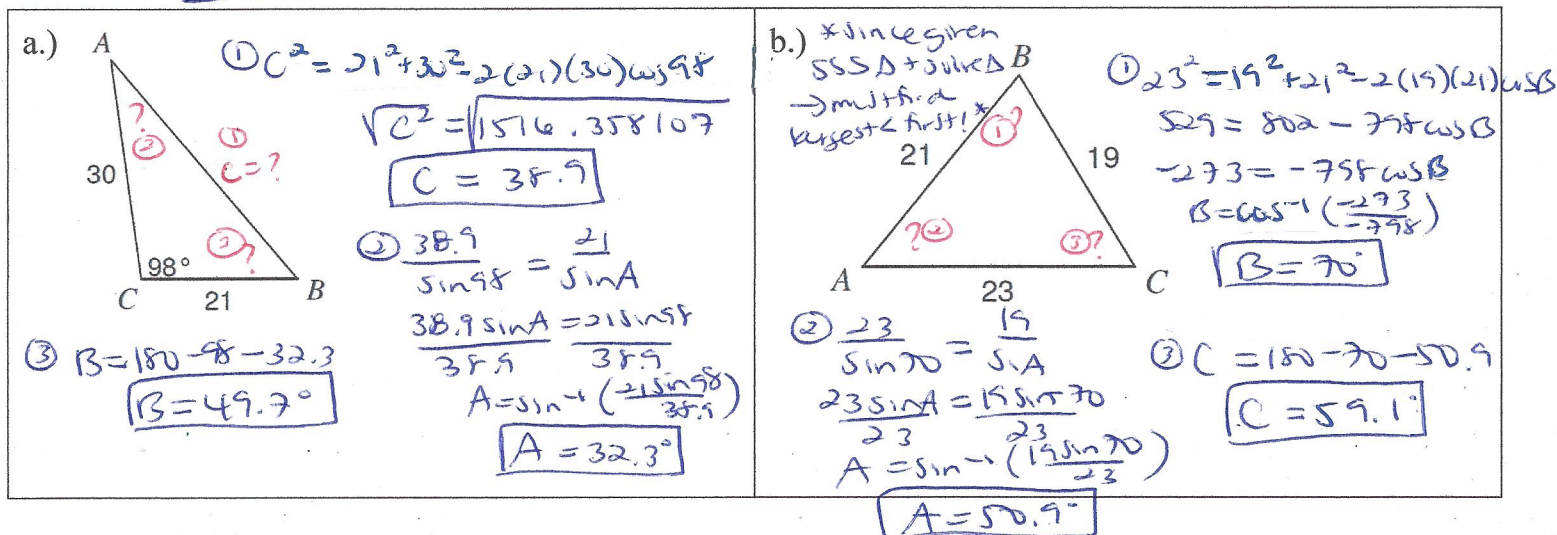 a.) A
① C² = 21² + 30² - 2(21)(30)cos98
√C² = √1516.358107
C = 38.9
?
②
30
①
c = ?
③?
98°
C
21
B
② 38.9/sin98 = 21/sinA
38.9 sinA/38.9 = 21 sin98/38.9
A = sin⁻¹(21 sin98/38.9)
A = 32.3°
③ B = 180 - 98 - 32.3
B = 49.7°
b.) *since given
SSS Δ + solve Δ
→ must find
largest < first! *
B
①?
21
19
?②
③?
A
23
C
① 23² = 19² + 21² - 2(19)(21)cosB
529 = 802 - 798 cosB
-273 = -798 cosB
B = cos⁻¹(-273/-798)
B = 70°
② 23/sin70 = 19/sinA
23 sinA/23 = 19 sin70/23
A = sin⁻¹(19 sin70/23)
A = 50.9°
③ C = 180 - 70 - 50.9
C = 59.1°